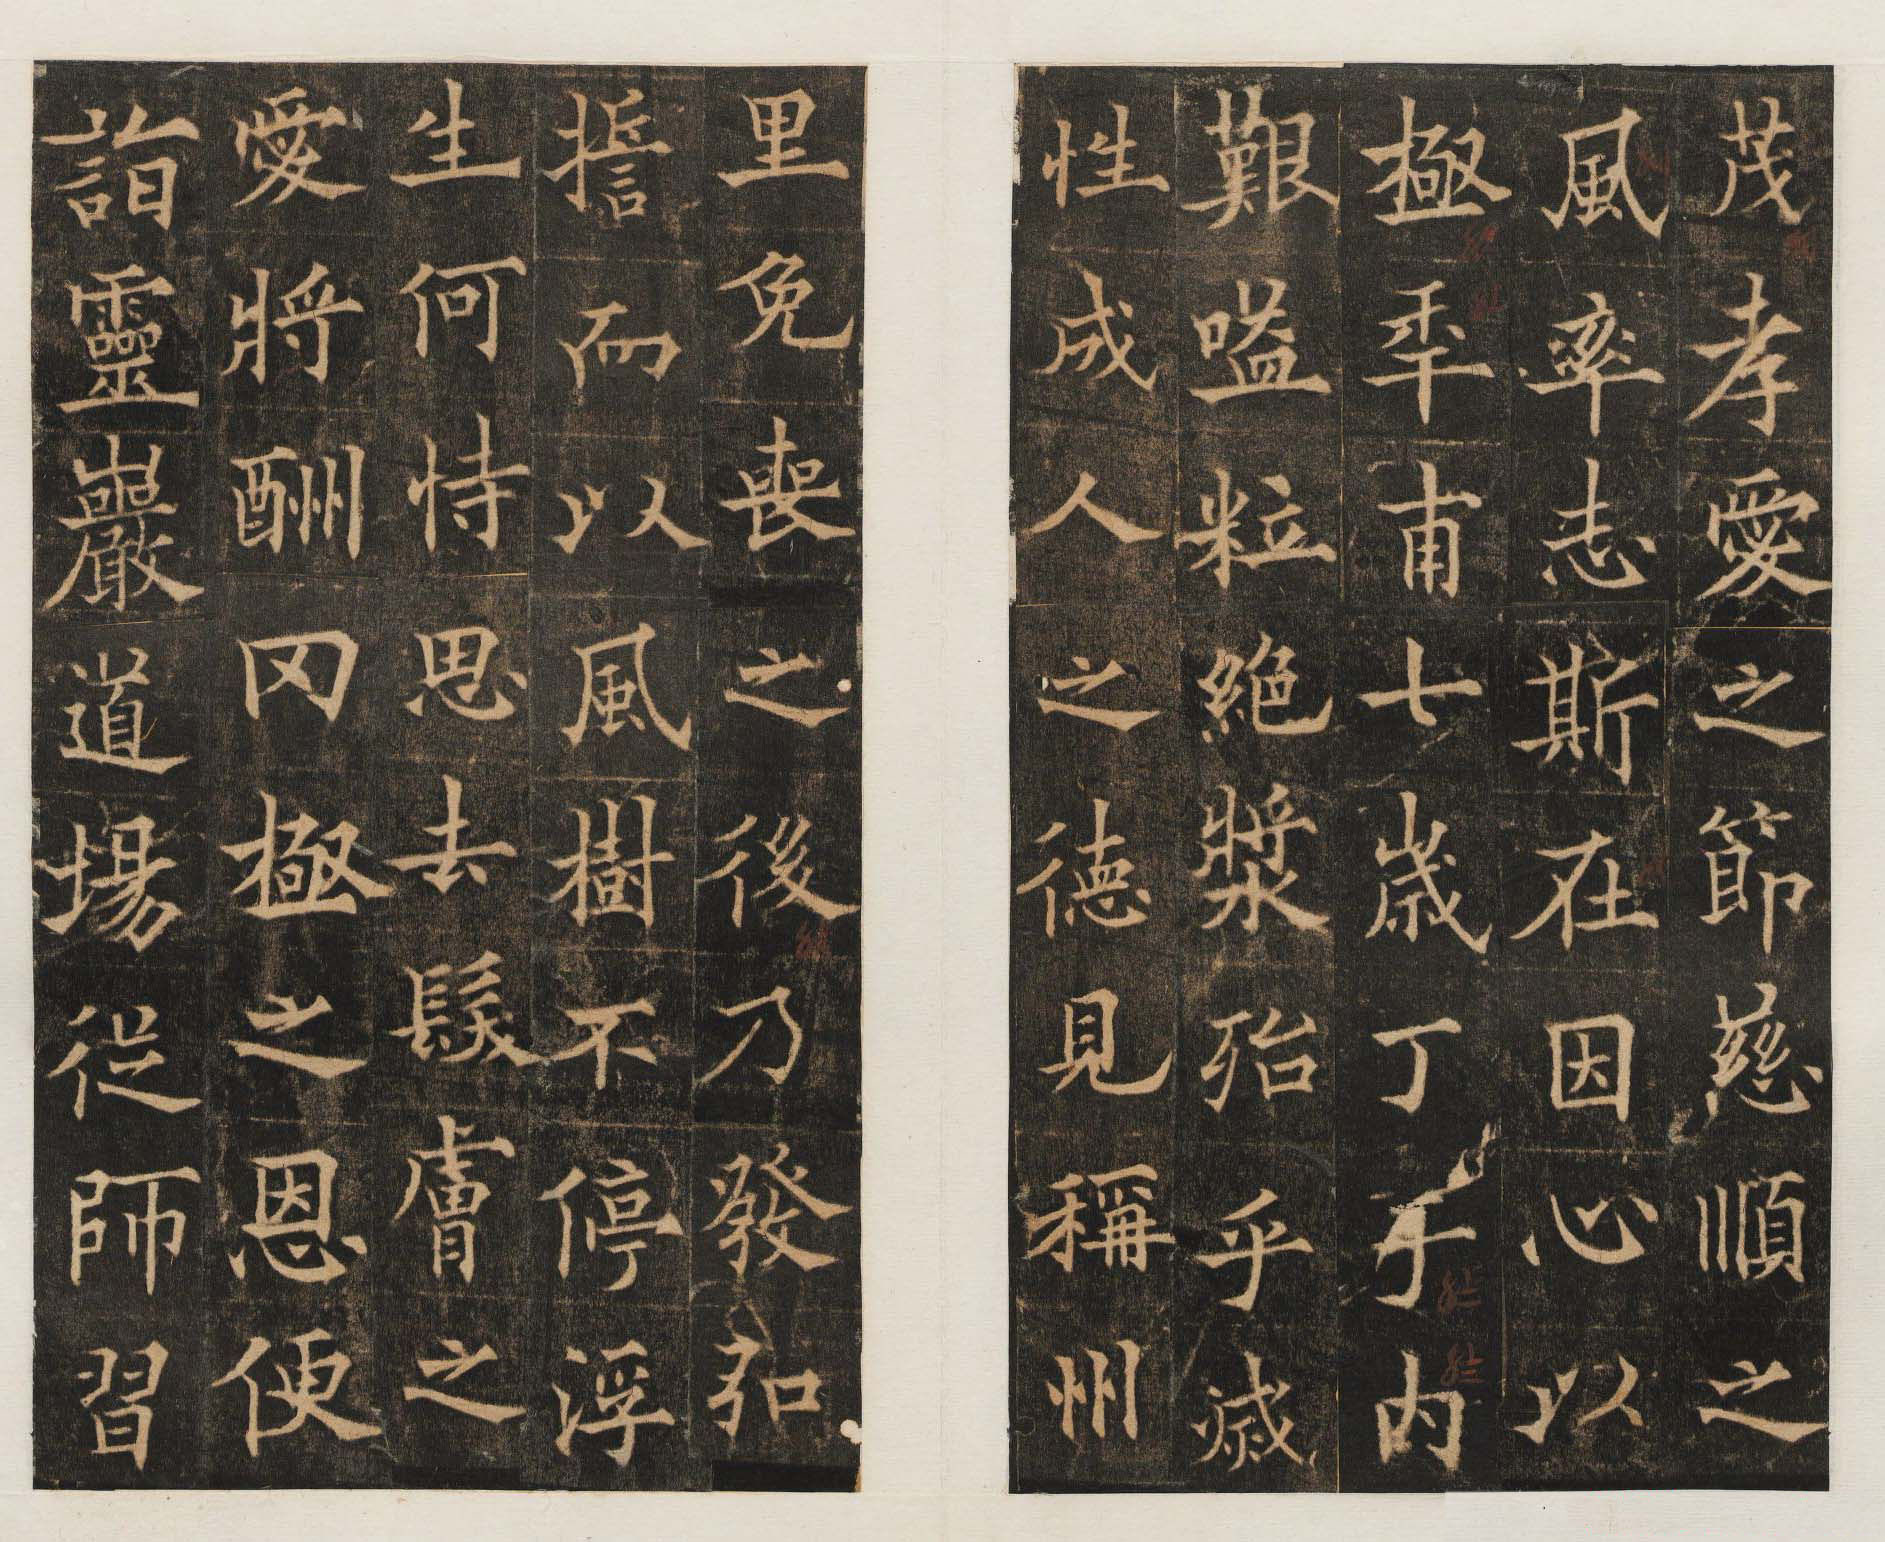 茂孝愛之節慈順之
風率志斯在因心以
極年甫七歲丁于內
艱嗌粒絕漿殆乎滅
性成人之德見稱州
里免喪之後乃發弘
擔而以風樹不停浮
生何恃思去髮膚之
愛將酬罔極之恩便
詣靈巖道場從師習